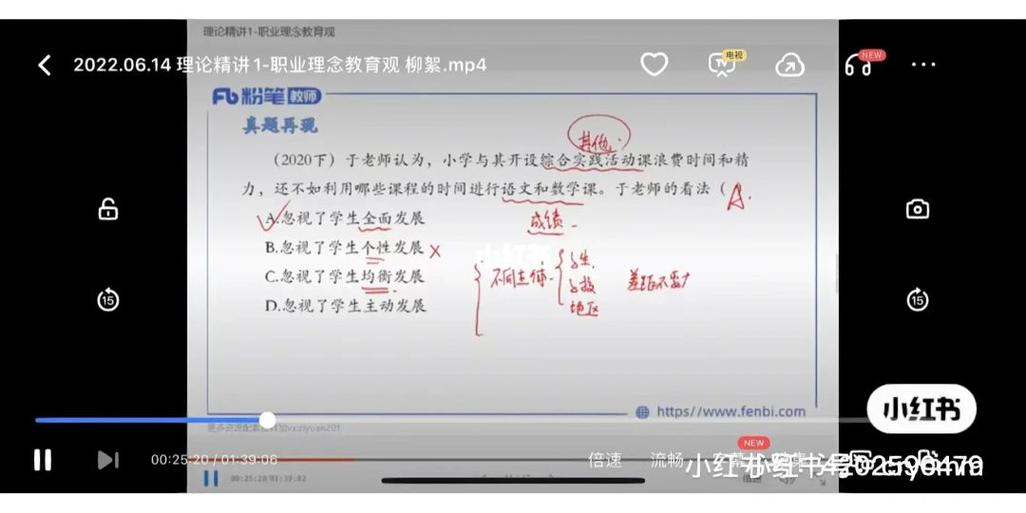 理论精讲1-职业理念教育观
2022.06.14 理论精讲1-职业理念教育观 柳絮.mp4
电视
NEW
粉笔教师
真题再现
其他
(2020下)于老师认为,小学与其开设综合实践活动课浪费时间和精
力,还不如利用哪些课程的时间进行语文和数学课。于老师的看法(A.
A.忽视了学生全面发展
成绩
B.忽视了学生个性发展
C.忽视了学生均衡发展
D.忽视了学生主动发展
不同主体
学生
学校
地区
差距不要大
小红书
15
15
https//www.fenbi.com
小红书
00:25:20 / 01:39:06
倍速
流畅
NEW
00:25:20/01:39:02